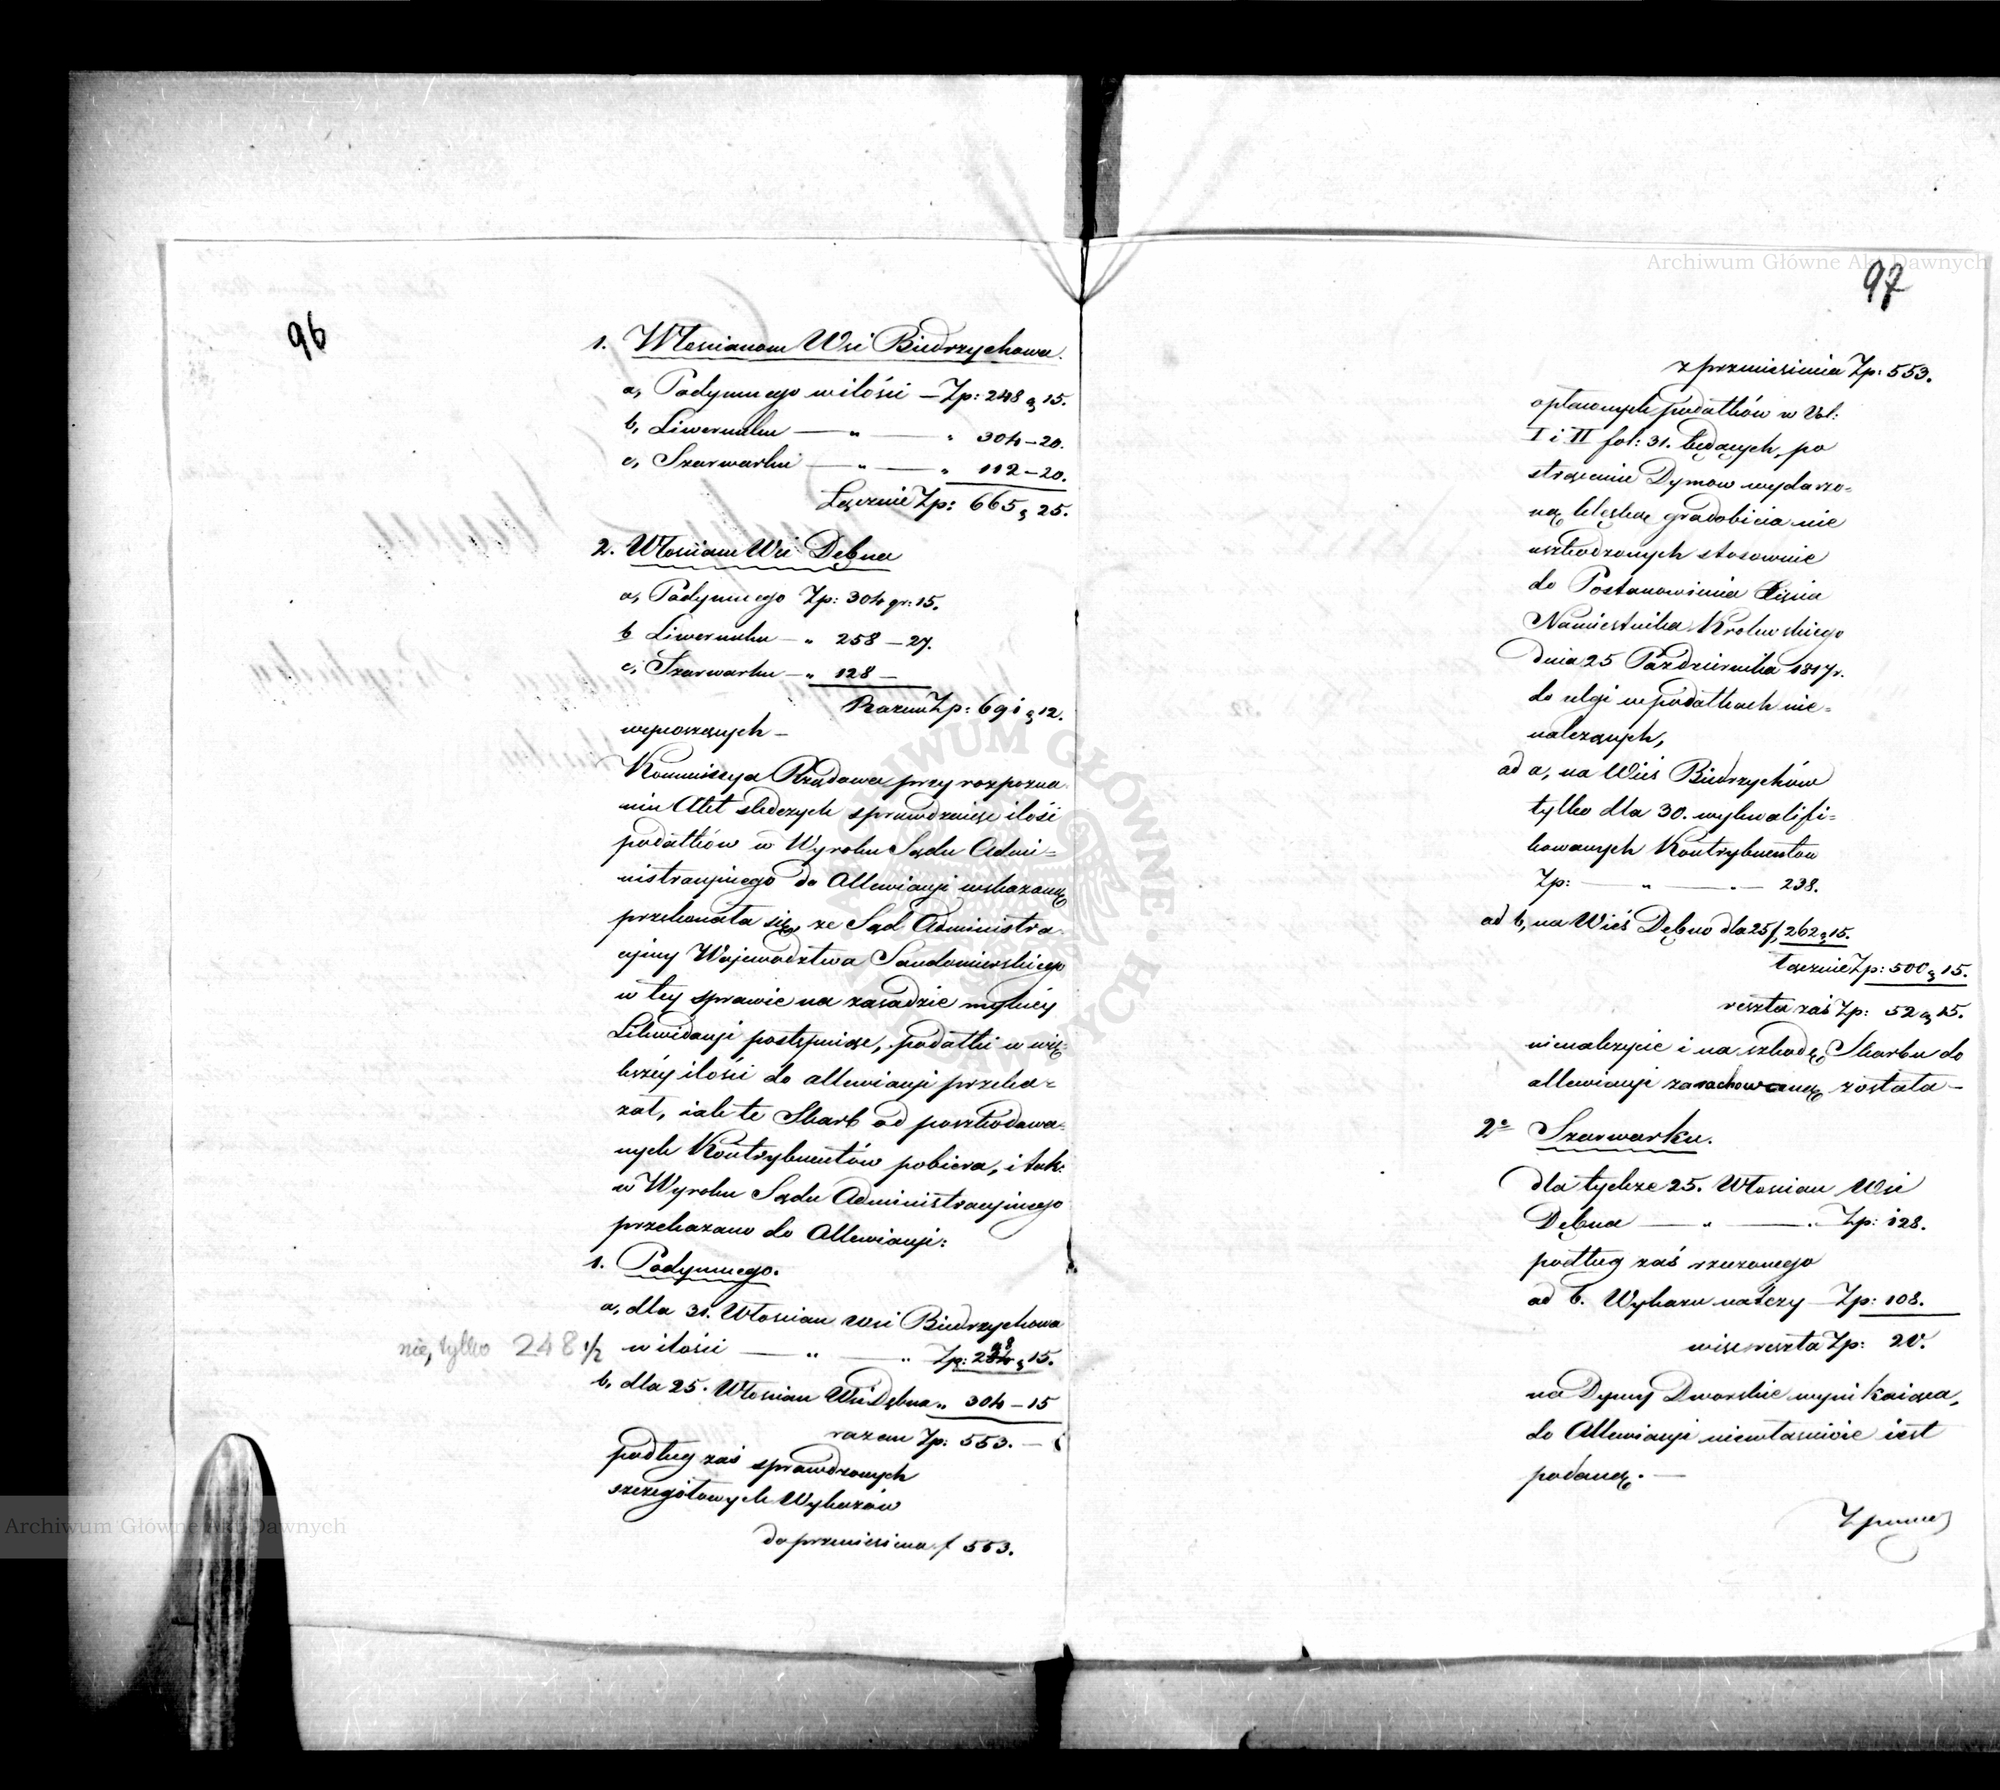 96
1. Włosianom Wsi Biedrzychowa.
a, Podymnego wilości — Zp: 248 g 15.
b, Liwerunku — " — " 304 – 20.
c, Szarwarku — " — " 112 – 20.
Łącznie Zp: 665 g 25.
2. Włosian Wsi Dębna
a, Podymnego Zp: 304 gr: 15.
b Liwerunku — " 258 – 27.
c, Szarwarku — " 128 —
Razem Zp: 691 g 12.
wynoszących —
Kommissya Rządowa przy rozpozna
niu Akt śledczych sprawdzaiąc ilość
podatków w Wyroku Sądu Admi=
nistracyinego do Allewiacyi wskazaną
przekonała się, ze Sąd Administra=
cyiny Województwa Sandomierskiego
w tey sprawie na zasadzie mylnéy
Likwidacyi postępuiąc, podatki w więk=
kszéy ilości do allewiacyi przeka=
zał, iak te Skarb od poszkodowa=
nych Kontrybuentów pobiera, i tak:
w Wyroku Sądu Administracyinego
przekazano do Allewiacyi:
1. Podymnego.
a, dla 31. Włosian wsi Biedrzychowa
nie, tylko 248 1/2 w ilości — " — " Zp: 248 g 15.
b, dla 25. Włosian Wsi Dębna " 304 – 15
razem Zp: 553. —
podług zaś sprawdzonych
szczegółowych Wykazów
do przeniesienia f 553.
97
z przeniesienia Zp: 553.
opłaconych podatków w Vol:
I i II fol: 31. będących, po
strąceniu Dymow wydarzo=
ną klęską gradobicia nie
uszkodzonych stosownie
do Postanowienia Xięcia
Namiestnika Krolewskiego
dnia 25 Października 1817 r.
do ulgi w podatkach nie=
nalezących,
ad a, na Wieś Biedrzychów
tylko dla 30. wykwalifi=
kowanych Kontrybuentow
Zp: — " — " — 238.
ad b, na Wieś Dębno dla 25 f, 262 g 15.
łącznie Zp: 500 g 15.
reszta zaś Zp: 52 g 15.
nienalezycie i na szkodę Skarbu do
allewiacyi zarachowaną została —
2o Szarwarku.
dla tychze 25. Włosian Wsi
Dębna — " — " Zp: 128.
podług zaś rzeczonego
ad b. Wykazu nalezy — Zp: 108.
więc reszta Zp: 20.
na Dymy Dworskie wynikaiąca,
do Allewiacyi niewłasciwie iest
podaną. —
Archiwum Główne Akt Dawnych
ARCHIWUM GŁÓWNE AKT DAWNYCH
Archiwum Główne Akt Dawnych